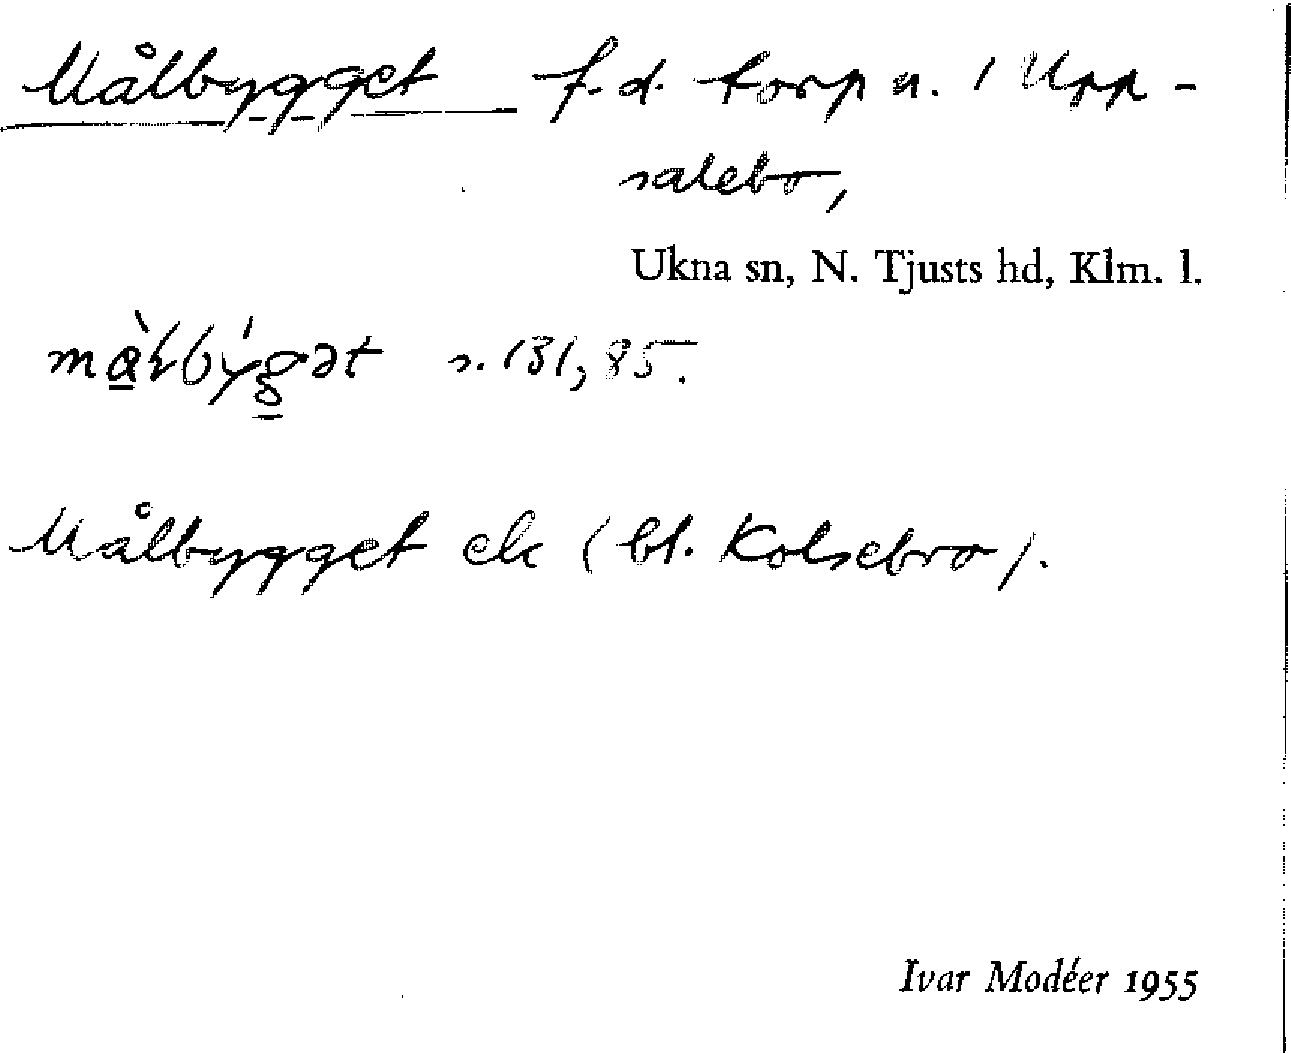 Målbygget f.d. torp u. / Upp-
salebo,
Ukna sn, N. Tjusts hd, Klm. l.
s. 131, 85.
Målbygget ek (bl. Kolsebro).
Ivar Modéer 1955